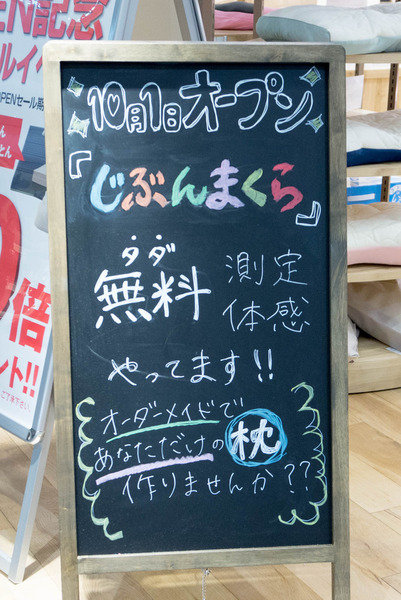 10月1日オープン
『じぶんまくら』
タダ
無料
測定
体感
やってます!!
オーダーメイドで
あなただけの枕
作りませんか??
EN記念
ルイベ
OPENセール期
倍
ント!!